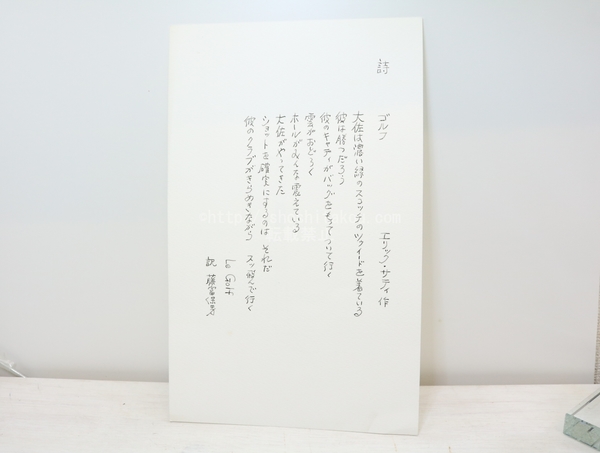 詩
ゴルフ　エリック・サティ作
大佐は濃い緑のスコッチのツヴィードを着ている
彼は勝つだろう
彼のキャディがバッグをもってついて行く
雲がおどろく
ホールがみんな震えている
大佐がやってきた
ショットを確実にするのは それだ
彼のクラブがきらめきながら スッ飛んで行く
Le Golf
訳 藤富保男